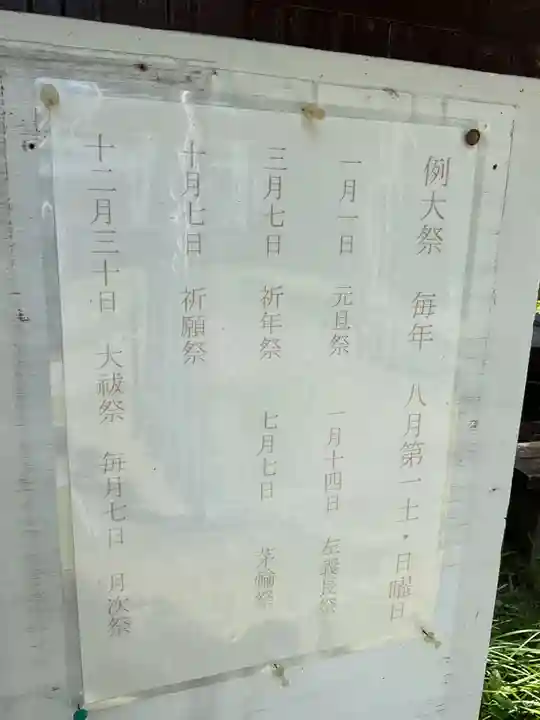 例大祭 毎年 八月第一土・日曜日
一月一日 元旦祭 一月十四日 左義長祭
三月七日 祈年祭 七月七日 茅輪祭
十月七日 祈願祭
十二月三十日 大祓祭 毎月七日 月次祭